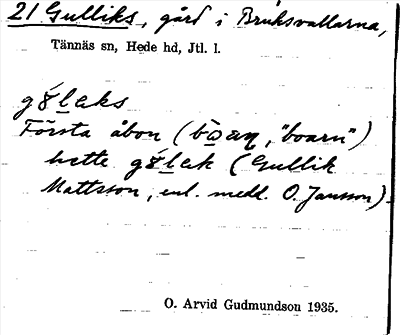 21 Gulliks, gård i Bruksvallarna,
Tännäs sn, Hede hd, Jtl. l.
Första åbon ( "boarn")
hette (Gullik
Mattsson, enl. medd. O. Jansson).
O. Arvid Gudmundson 1935.